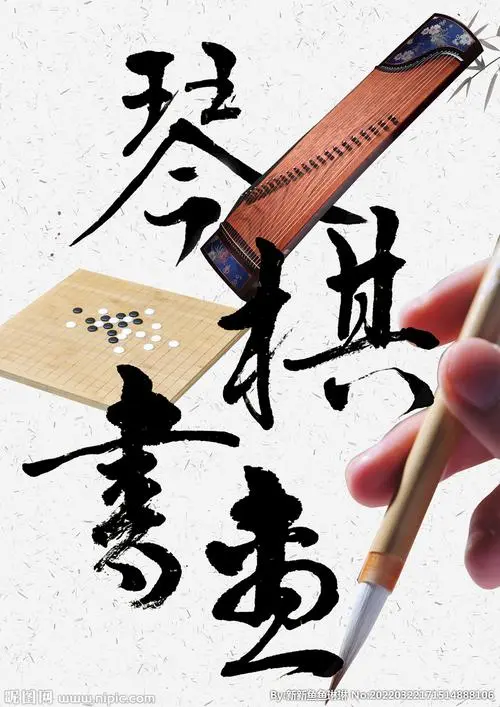 琴
棋
書畫
昵图网 www.nipic.com
By:新新鱼鱼琳琳 No:20220322171514888106